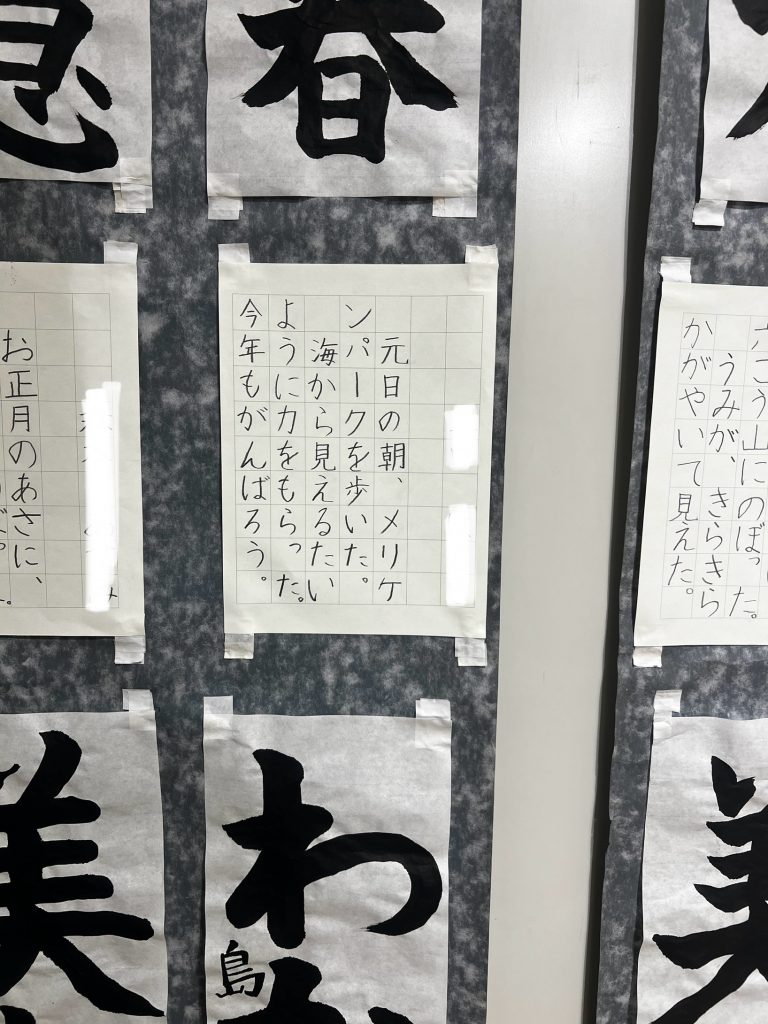 春
こう山にのぼった。
うみが、きらきら
かがやいて見えた。
元日の朝、メリケ
ンパークを歩いた。
海から見えるたい
ように力をもらった。
今年もがんばろう。
お正月のあさに、
美
わ
島
美